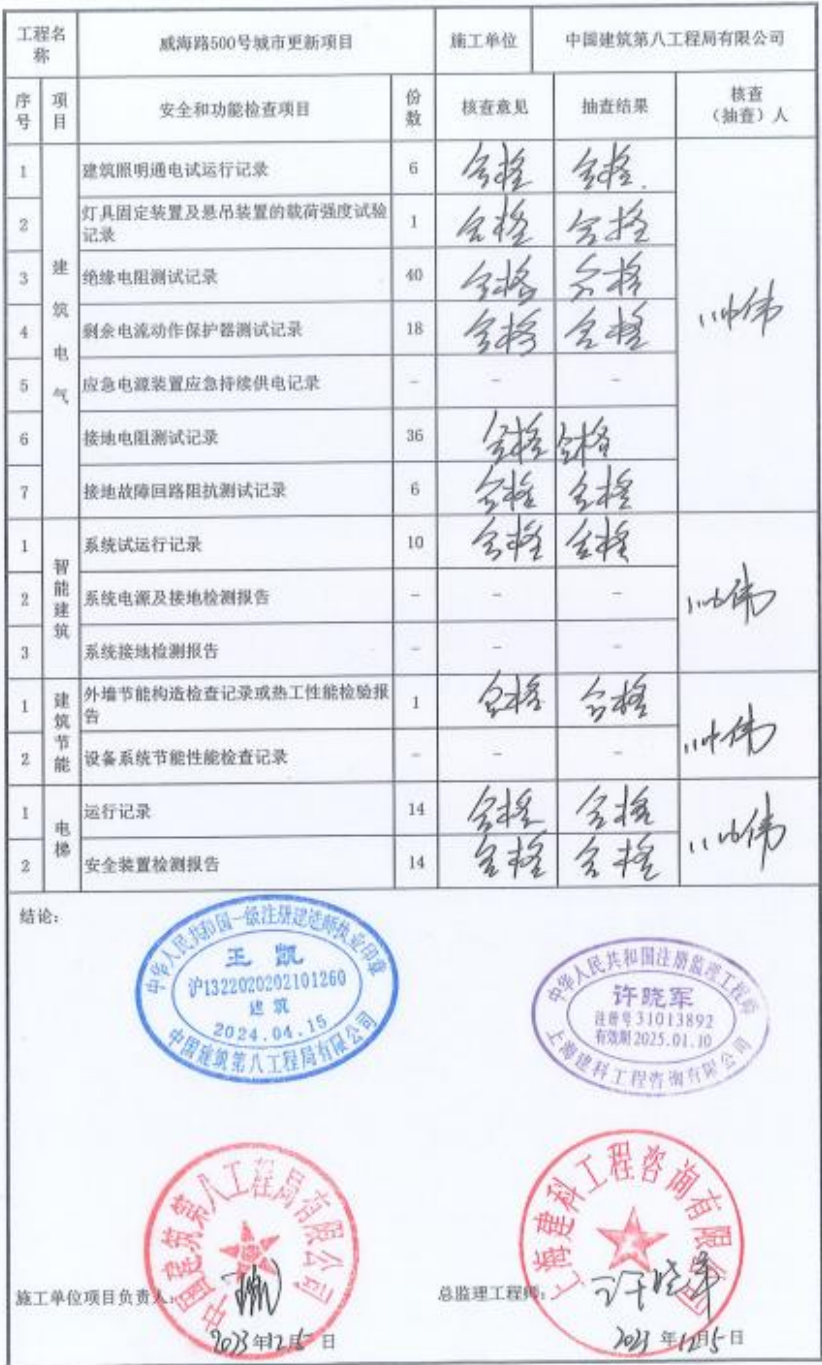 工程名称 威海路500号城市更新项目 施工单位 中国建筑第八工程局有限公司
序号 项目 安全和功能检查项目 份数 核查意见 抽查结果 核查（抽查）人
建筑电气
1 建筑照明通电试运行记录 6 合格 合格
2 灯具固定装置及悬吊装置的载荷强度试验记录 1 合格 合格
3 绝缘电阻测试记录 40 合格 合格
4 剩余电流动作保护器测试记录 18 合格 合格
5 应急电源装置应急持续供电记录 － － －
6 接地电阻测试记录 36 合格 合格
7 接地故障回路阻抗测试记录 6 合格 合格
智能建筑
1 系统试运行记录 10 合格 合格
2 系统电源及接地检测报告 － － －
3 系统接地检测报告 － － －
建筑节能
1 外墙节能构造检查记录或热工性能检验报告 1 合格 合格
2 设备系统节能性能检查记录 － － －
电梯
1 运行记录 14 合格 合格
2 安全装置检测报告 14 合格 合格
结论：
中华人民共和国一级注册建造师执业印章
王凯
沪1322020202101260
建筑
2024.04.15
中国建筑第八工程局有限公司
中华人民共和国注册监理工程师
许晓军
注册号31013892
有效期2025.01.10
上海建科工程咨询有限公司
中国建筑第八工程局有限公司
上海建科工程咨询有限公司
施工单位项目负责人：
总监理工程师： 许晓军
2023年12月5日
2023年12月5日